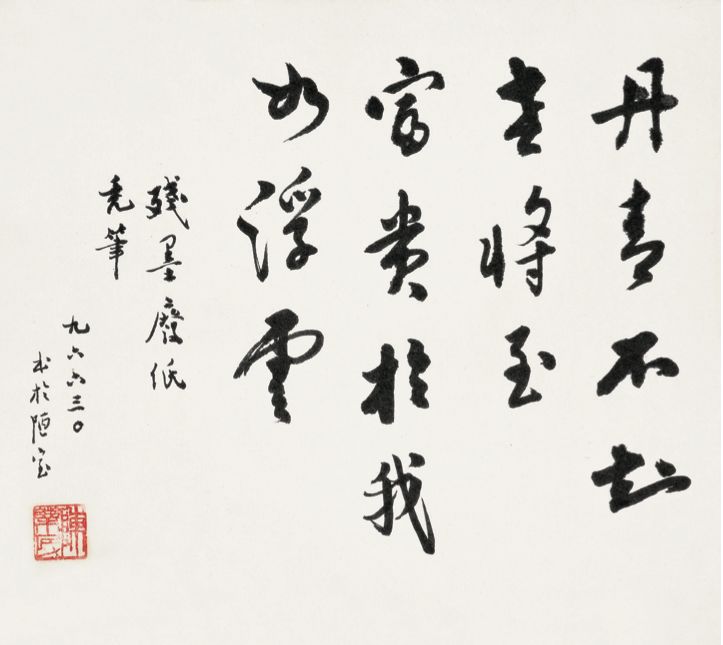 丹青不知
老將至
富貴於我
如浮雲
殘墨廢紙
禿筆
九六六三〇
於陋室